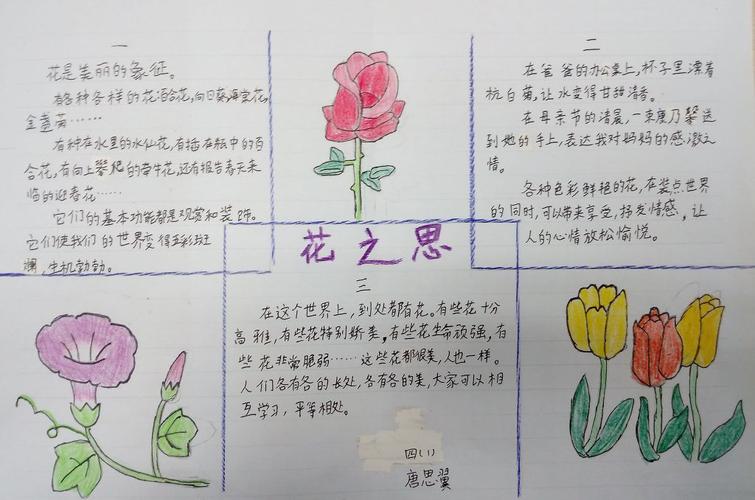 一
花是美丽的象征。
有各种各样的花:百合花,向日葵,海棠花,
金盏菊……
有种在水里的水仙花,有插在瓶中的百
合花,有向上攀爬的牵牛花,还有报告春天来
临的迎春花……
它们的基本功能都是观赏和装饰。
它们使我们的世界变得五彩斑
斓,生机勃勃。
二
在爸爸的办公桌上,杯子里漂着
杭白菊,让水变得甘甜清香。
在母亲节的清晨,一束康乃馨送
到她的手上,表达我对妈妈的感激之
情。
各种色彩鲜艳的花,在装点世界
的同时,可以带来享受,抒发情感,让
人的心情放松愉悦。
花之思
三
在这个世界上,到处都有花。有些花十分
高雅,有些花特别娇美,有些花生命顽强,有
些花非常脆弱……这些花都很美,人也一样。
人们各有各的长处,各有各的美,大家可以相
互学习,平等相处。
四(1)
唐思翼